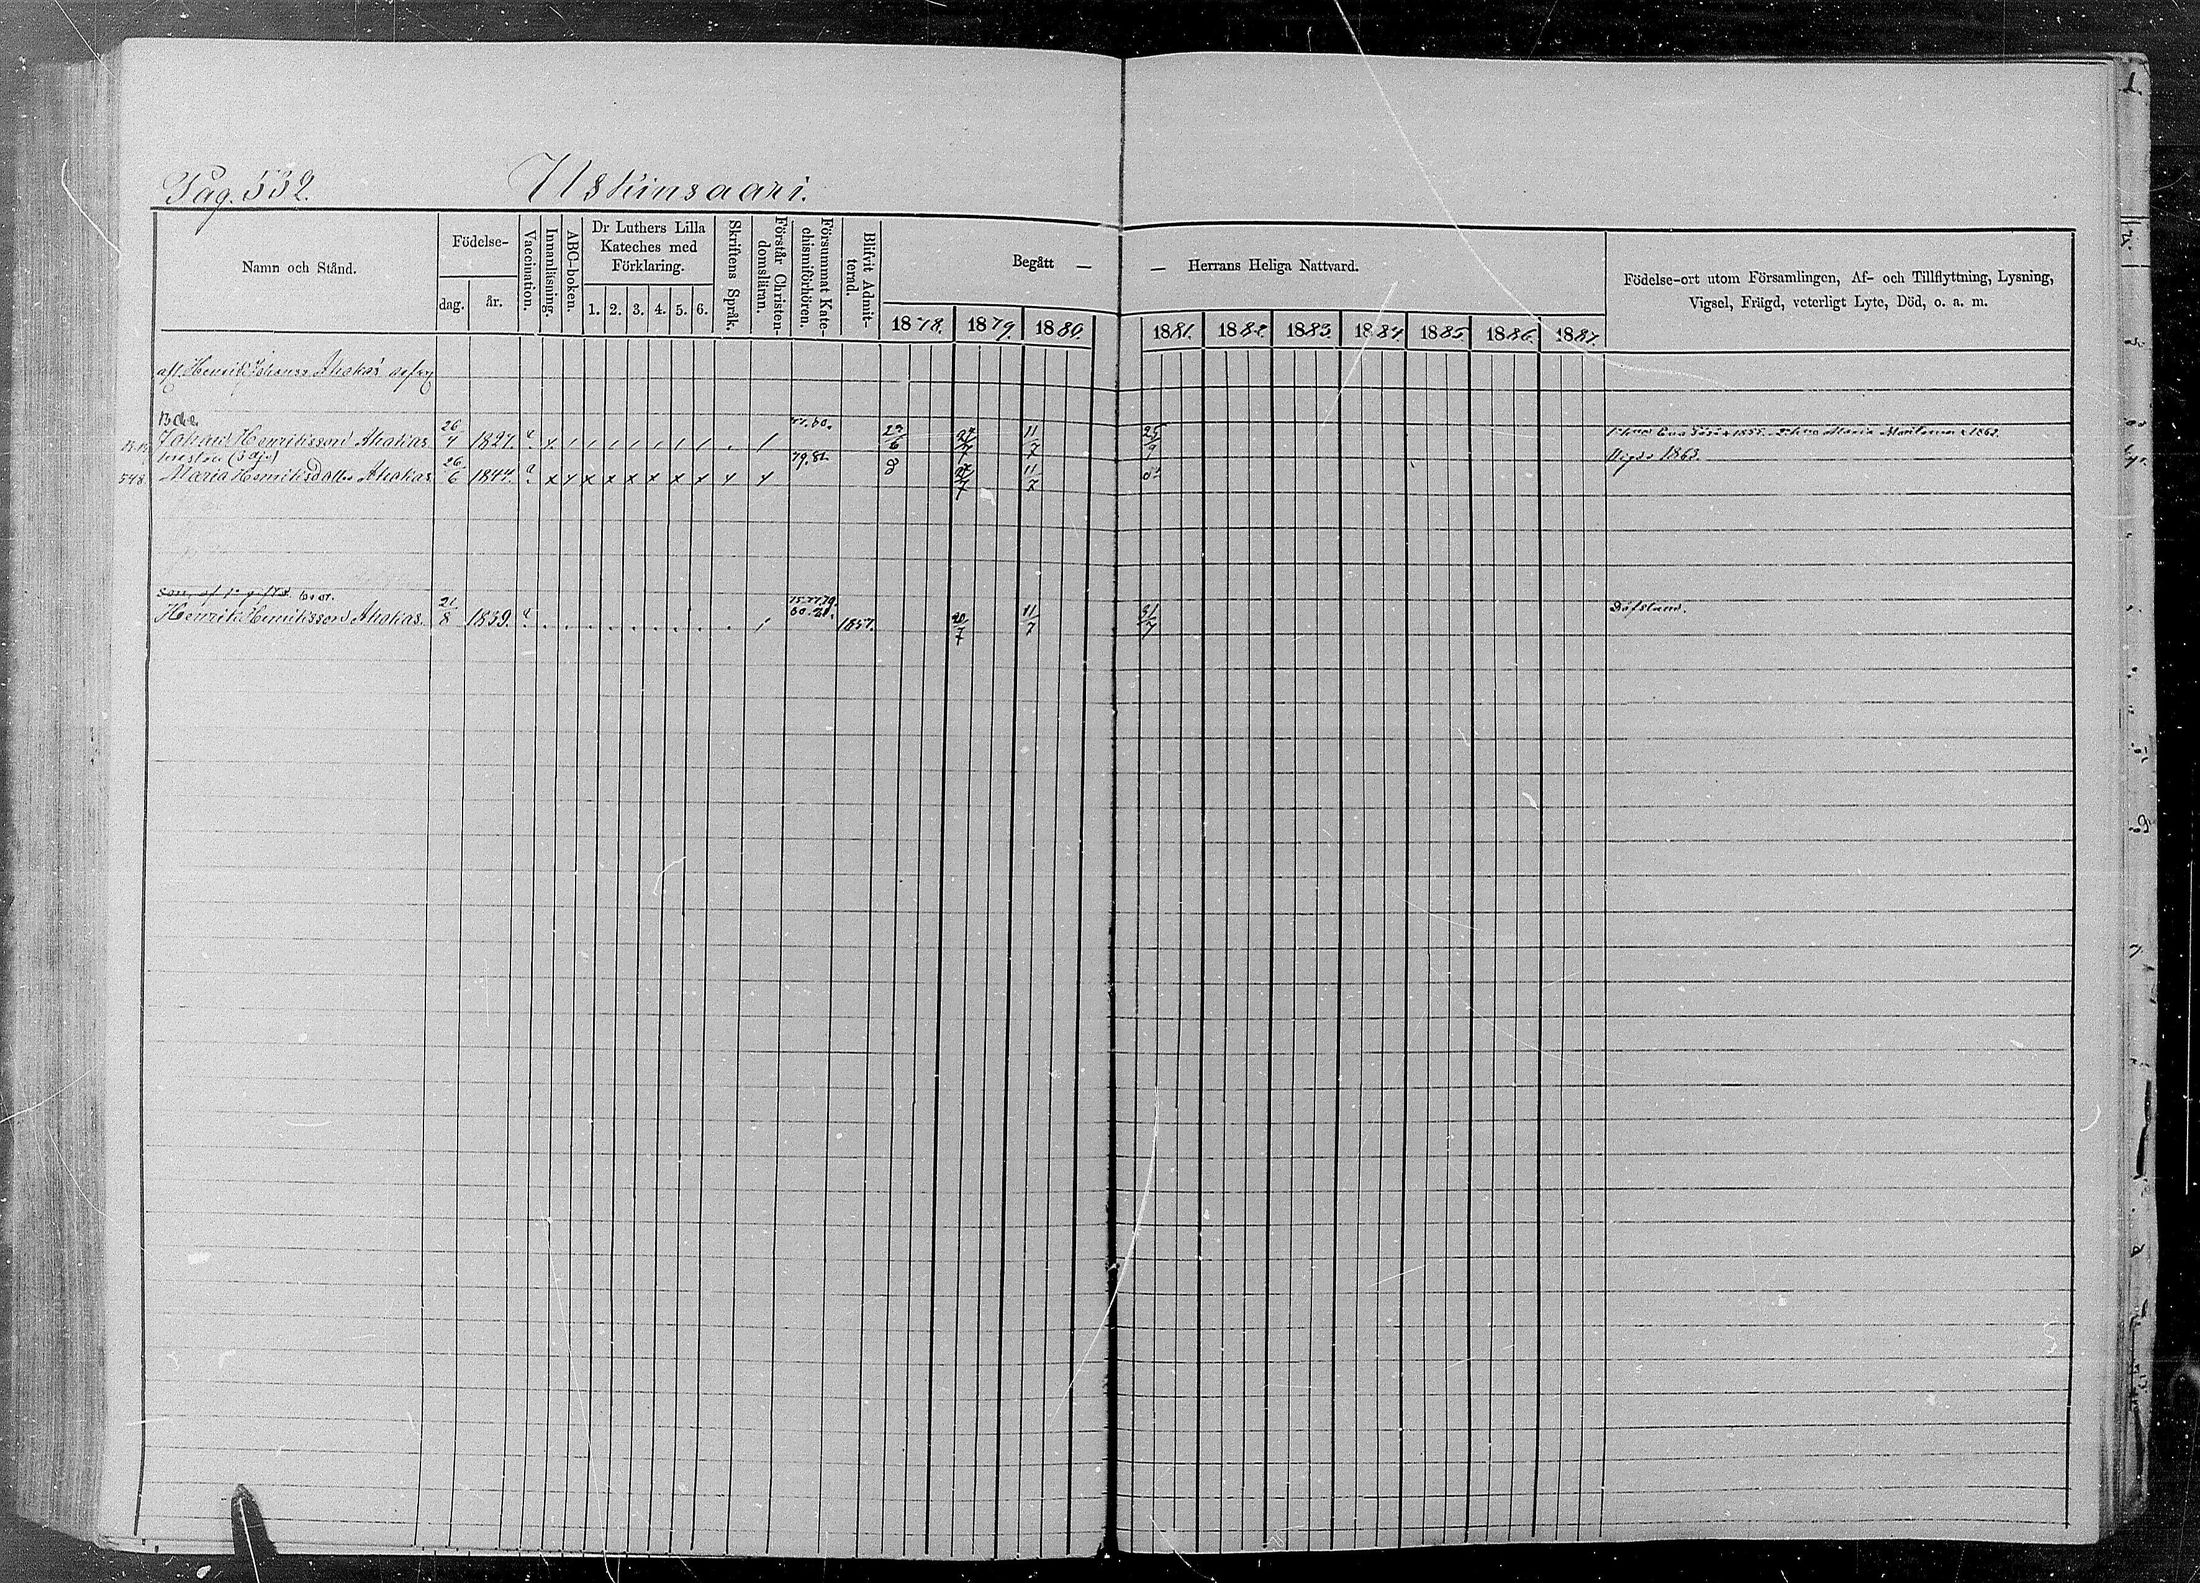 Pag. 532. Uskinsaari.
Namn och Stånd.
Födelse-
dag. år.
Vaccination.
Innanläsning.
ABC-boken.
Dr Luthers Lilla
Kateches med
Förklaring.
1. 2. 3. 4. 5. 6.
Skriftens Språk.
Förstår Christen-
domsläran.
Försummat Kate-
chismiförhören.
Blifvit Admit-
terad.
Begått — — Herrans Heliga Nattvard.
1878. 1879. 1880. 1881. 1882. 1883. 1884. 1885. 1886. 1887.
Födelse-ort utom Församlingen, Af- och Tillflyttning, Lysning,
Vigsel, Frägd, veterligt Lyte, Död, o. a. m.
afl. Henrik Johanss Ahokas
Johan Henriksson Ahokas. 26/4 1827. 11/7 25/9
Vigde 1863.
548 Maria Henriksdotter Ahokas 26/6 1844. 79.81. 27/7 11/7
Henrik Henriksson Ahokas. 21/8 1839. 1857. 20/7 11/7 31/7 Döfstum.